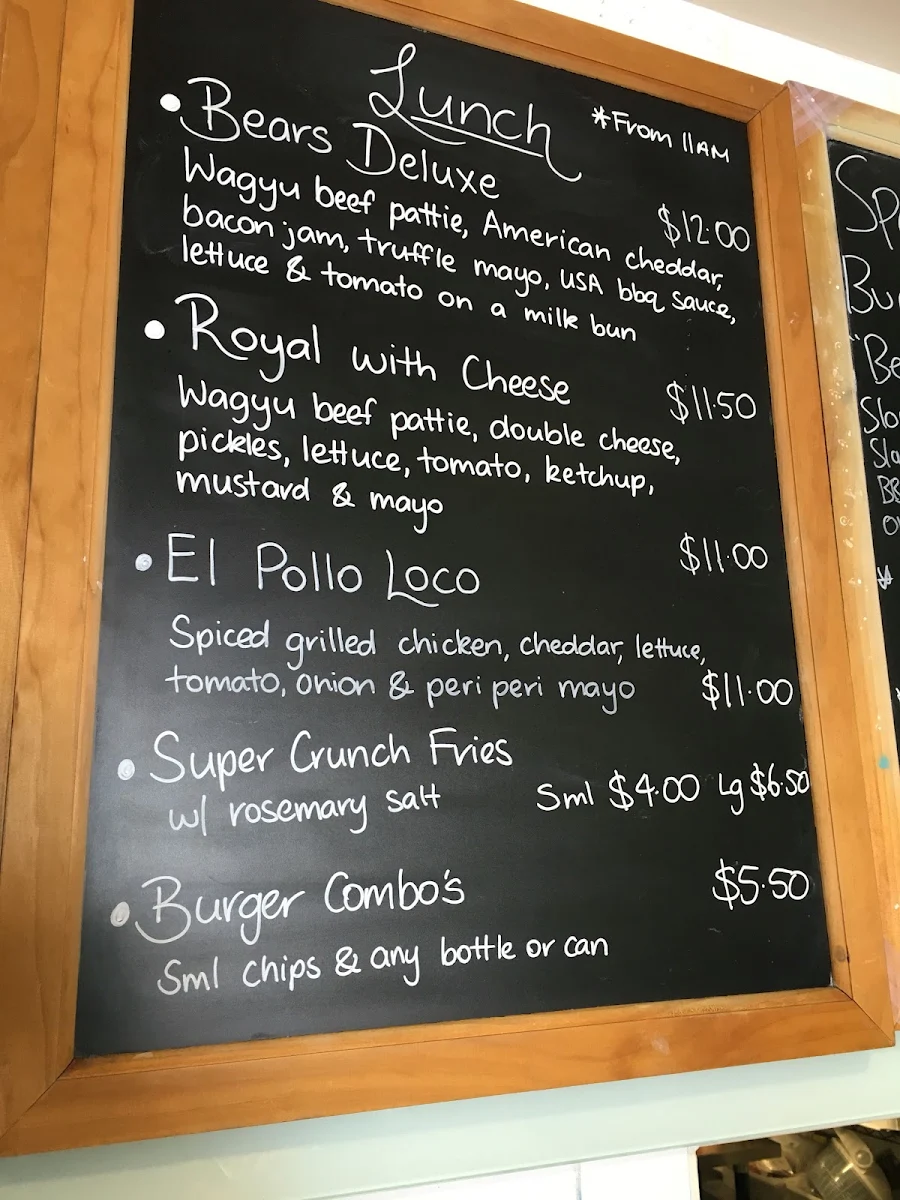 Lunch
*From 11AM
• Bears Deluxe
$12.00
Wagyu beef pattie, American cheddar,
bacon jam, truffle mayo, USA bbq sauce,
lettuce & tomato on a milk bun
• Royal with Cheese
$11.50
Wagyu beef pattie, double cheese,
pickles, lettuce, tomato, ketchup,
mustard & mayo
• El Pollo Loco
$11.00
Spiced grilled chicken, cheddar, lettuce,
tomato, onion & peri peri mayo
$11.00
• Super Crunch Fries
w/ rosemary salt
Sml $4.00 Lg $6.50
• Burger Combo's
$5.50
Sml chips & any bottle or can